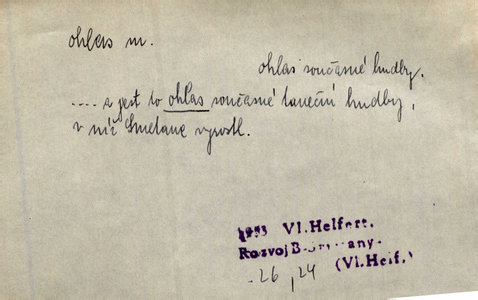 ohlas m.
ohlas současné hudby.
.... a jest to ohlas současné taneční hudby,
v níž Smetana vyrostl.
1953 Vl. Helfert,
Rozvoj
(Vl. Helf.)
26, 24